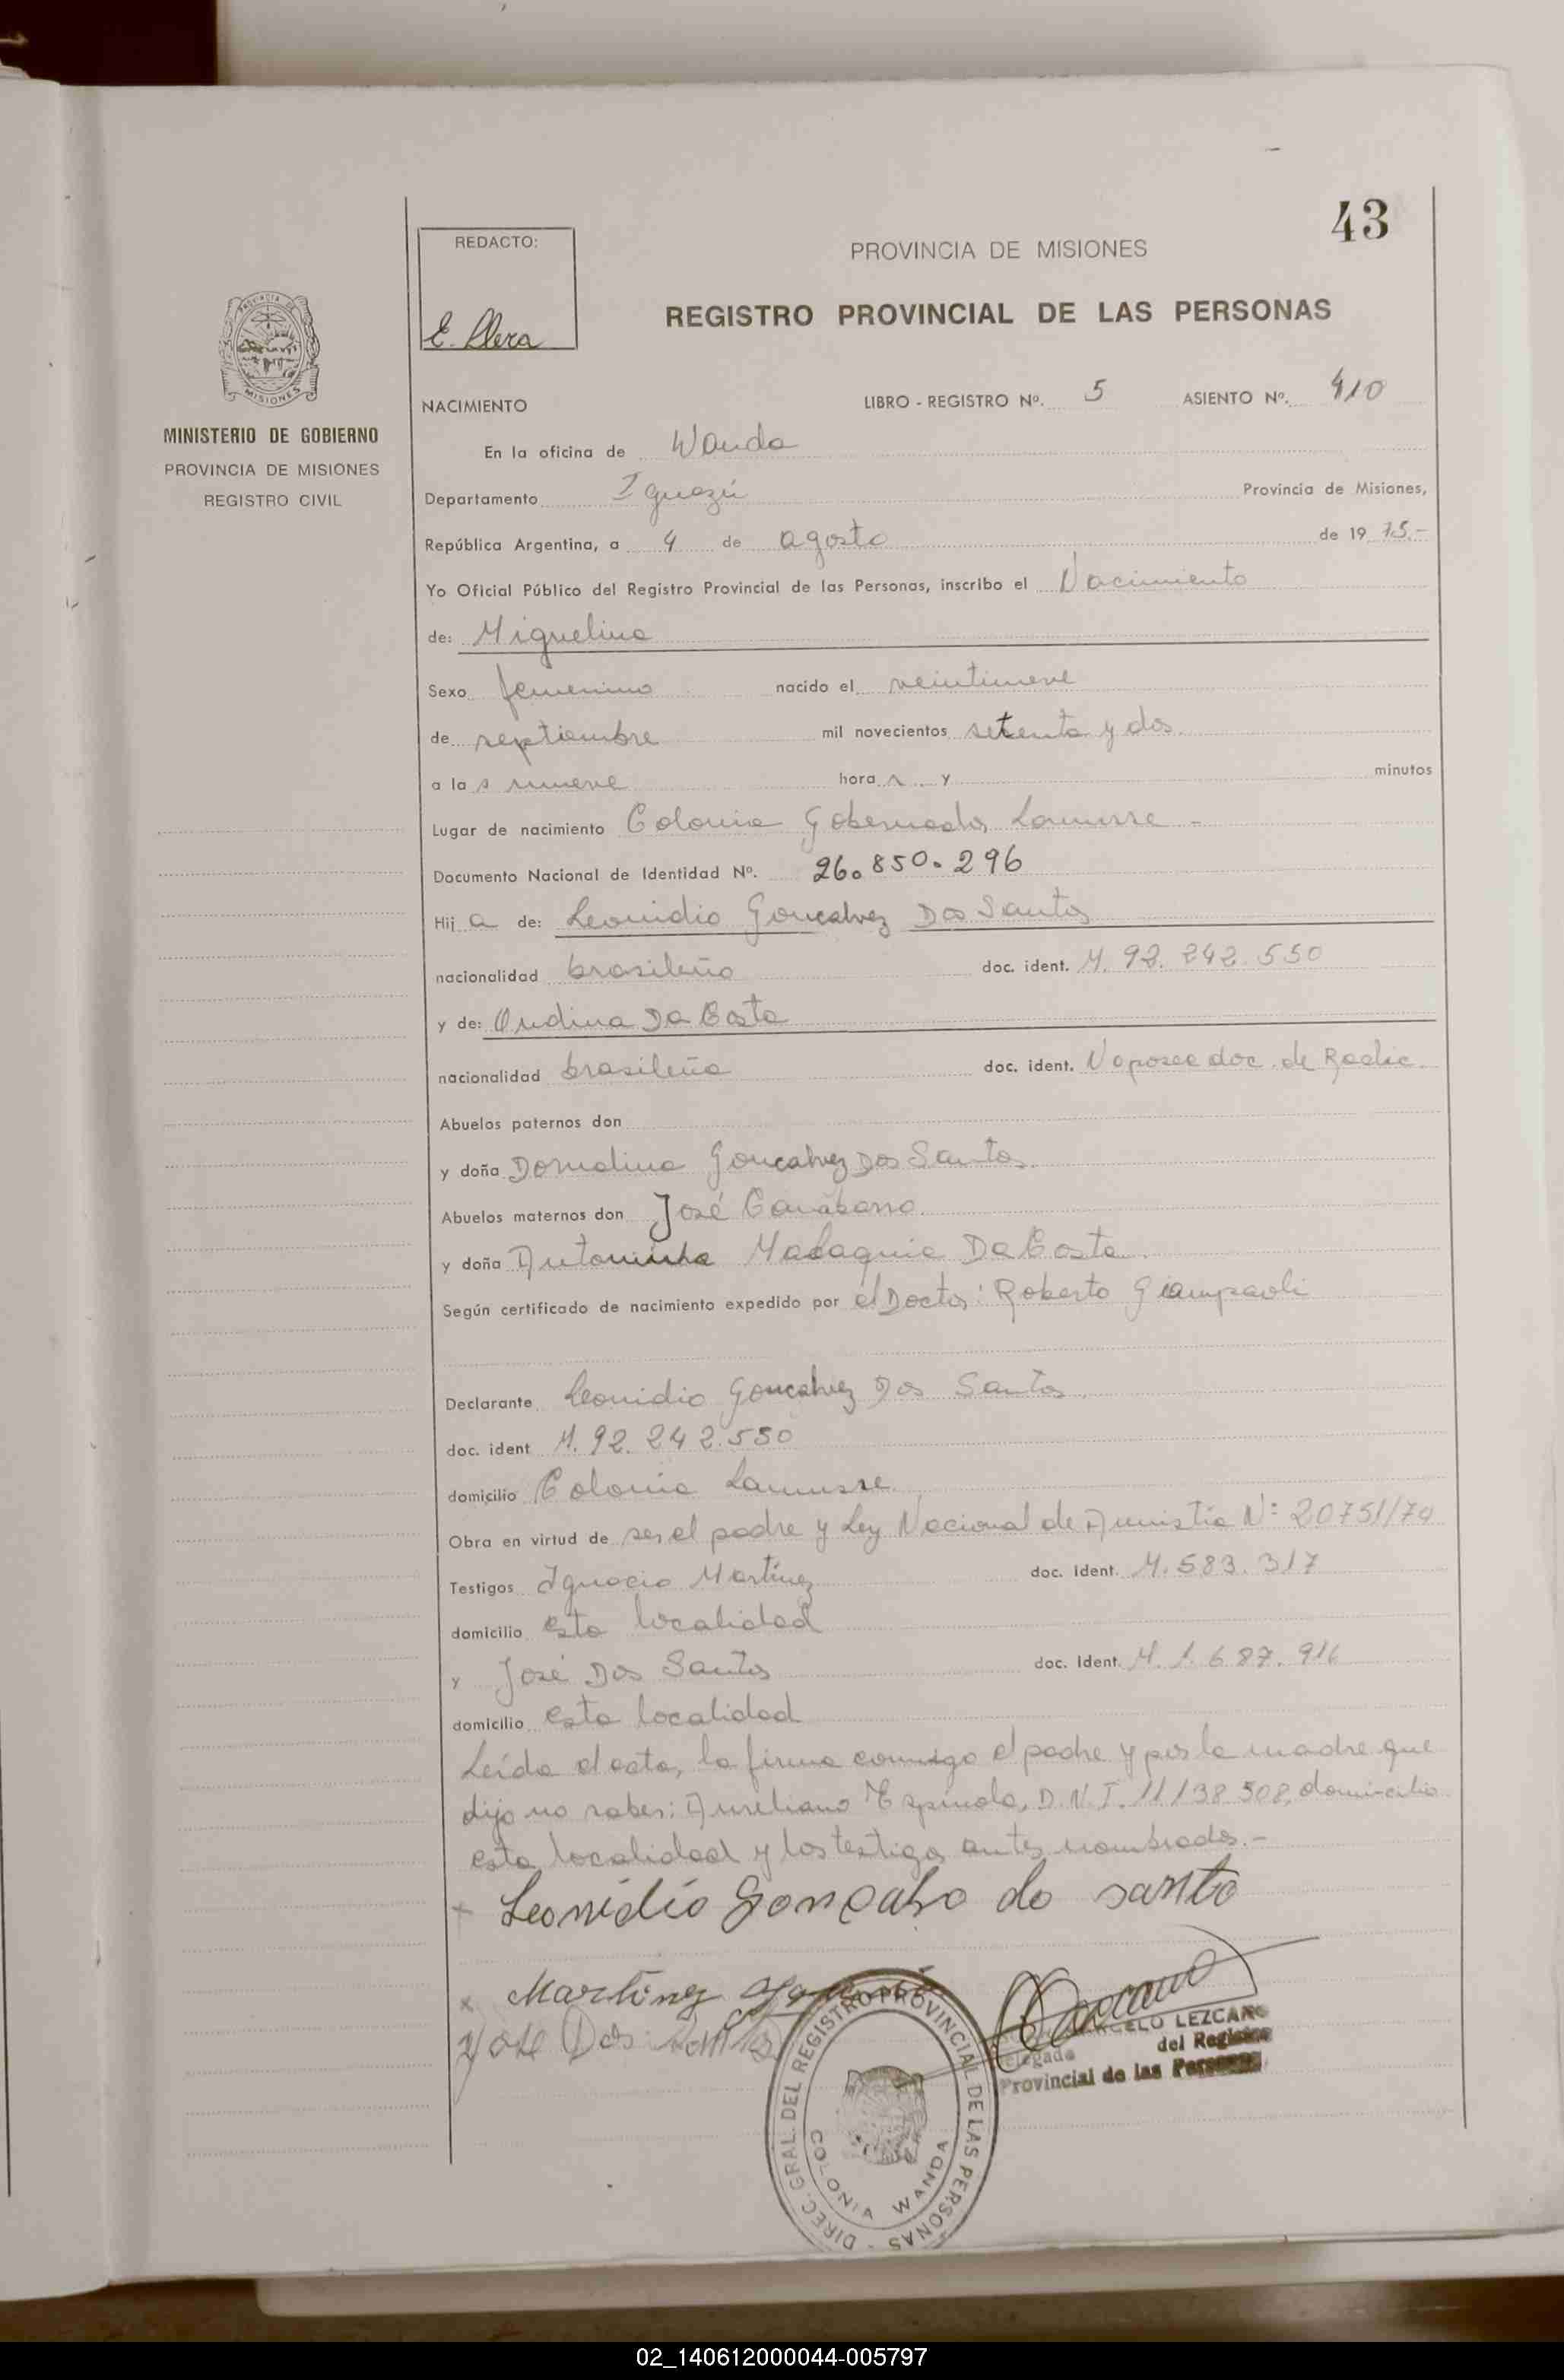 43
REDACTO:
E. Llera
PROVINCIA DE MISIONES
REGISTRO PROVINCIAL DE LAS PERSONAS
PROVINCIA DE
MISIONES
MINISTERIO DE GOBIERNO
PROVINCIA DE MISIONES
REGISTRO CIVIL
NACIMIENTO LIBRO - REGISTRO Nº. 5 ASIENTO Nº. 410
En la oficina de Wanda
Departamento Iguazú Provincia de Misiones,
República Argentina, a 4 de agosto de 19 75.-
Yo Oficial Público del Registro Provincial de las Personas, inscribo el Nacimiento
de: Miguelina
Sexo femenino nacido el veintinueve
de septiembre mil novecientos setenta y dos
a la s nueve hora s y minutos
Lugar de nacimiento Colonia Gobernador Lanusse -
Documento Nacional de Identidad Nº. 26.850.296
Hij a de: Leonidio Goncalvez Dos Santos
nacionalidad brasileño doc. ident. M. 92.242.550
y de: Ondina Da Costa
nacionalidad brasileña doc. ident. No posee doc. de Radic.
Abuelos paternos don
y doña Dornalina Goncalvez Dos Santos
Abuelos maternos don José
y doña Antoninha Malaquia Da Costa
Según certificado de nacimiento expedido por el Doctor: Roberto Giampaoli
Declarante Leonidio Goncalvez Dos Santos
doc. ident M. 92.242.550
domicilio Colonia Lanusse
Obra en virtud de ser el padre y Ley Nacional de Amnistía Nº 20751/74
Testigos Ignacio Martínez doc. Ident. M. 583.317
domicilio esta localidad
y José Dos Santos doc. Ident. M. 1.687.916
domicilio esta localidad
Leída el acta, la firma conmigo el padre y por la madre que
dijo no saber: Aureliano Espíndola, D.N.I. 11138508, domicilio
esta localidad y los testigos antes nombrados.-
x Leonidio Goncalvo do santo
x Martinez
Jose Dos Santos
LEZCANO
Delegado del Registro
Provincial de las Personas
DIREC. GRAL. DEL REGISTRO PROVINCIAL DE LAS PERSONAS -
COLONIA WANDA
02_140612000044-005797